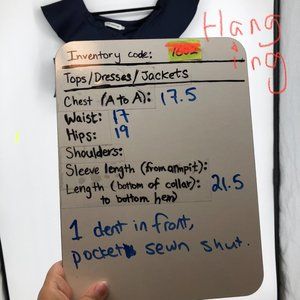 Hang
ing
Inventory code:
Tops/Dresses/Jackets
Chest (A to A): 17.5
Waist: 17
Hips: 19
Shoulders:
Sleeve length (from armpit):
Length (bottom of collar): 21.5
to bottom hem)
1 dent in front,
pocket sewn shut.